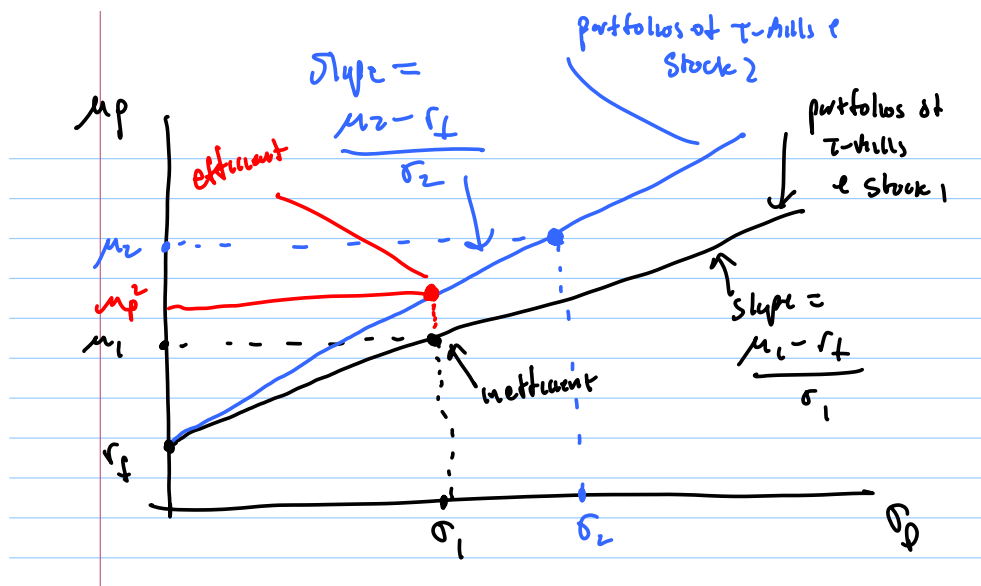 portfolios of T-bills &
Stock 2
Slope =
μ2 - rf
σ2
μp
portfolios of
T-bills
& Stock 1
efficient
μ2
μp²
μ1
slope =
μ1 - rf
σ1
inefficient
rf
σ1
σ2
σp